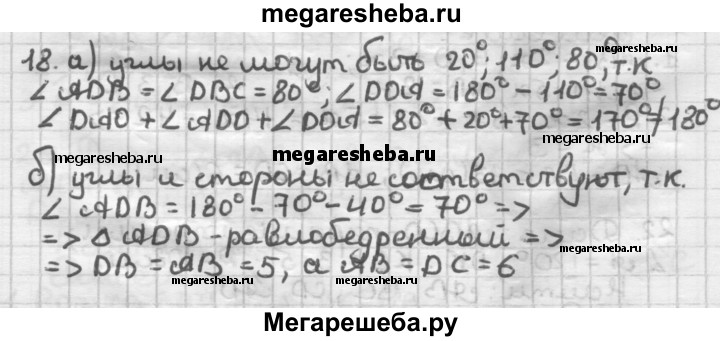 megaresheba.ru
18. а) углы не могут быть 20°; 110°; 80°, т.к
∠ ADB = ∠ DBC = 80°; ∠ DOA = 180° - 110° = 70°
∠ DAO + ∠ ADO + ∠ DOA = 80° + 20° + 70° = 170° ≠ 180°
megaresheba.ru
megaresheba.ru
megaresheba.ru
б) углы и стороны не соответствуют, т.к.
∠ ADB = 180° - 70° - 40° = 70° =>
=> Δ ADB - равнобедренный =>
megaresheba.ru
megaresheba.ru
=> DB = AB = 5, а AB = DC = 6
megaresheba.ru
Мегарешеба.ру